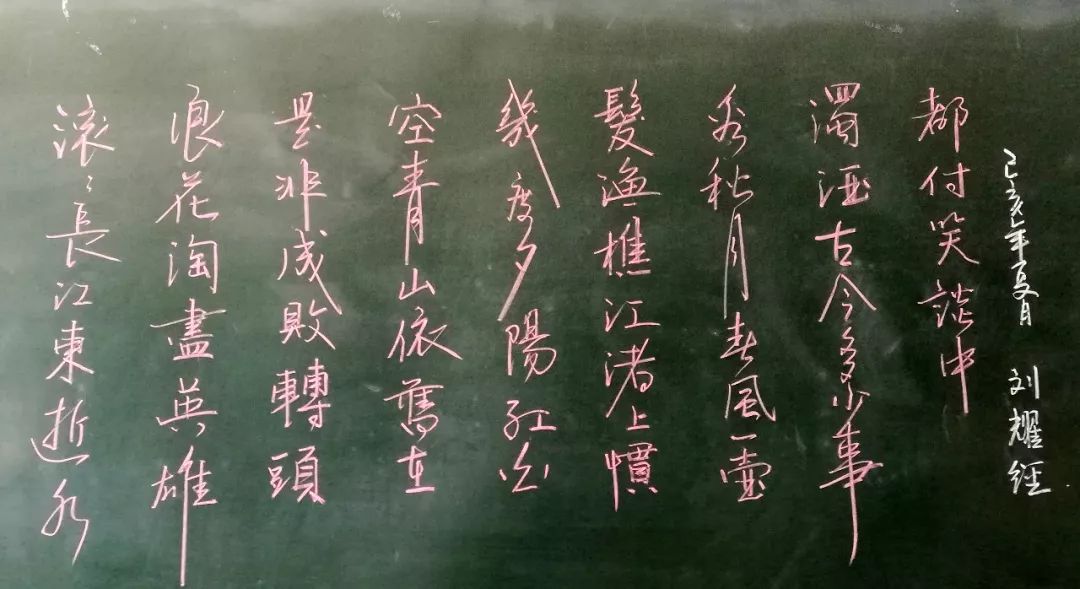 滚〻長江東逝水
浪花淘盡英雄
是非成敗轉頭
空青山依舊在
幾度夕陽紅白
髮漁樵江渚上慣
看秋月春風一壺
濁酒古今多少事
都付笑談中
己亥年夏月 刘耀经